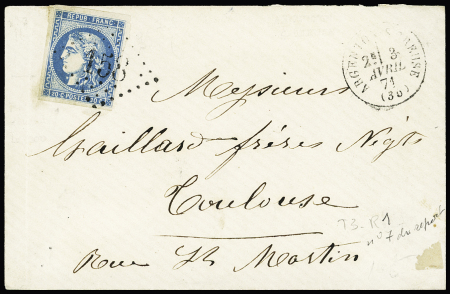 REPUB. FRANC.
20 C. POSTES 20 C.
158
2E 3
AVRIL
71
(38)
Messieurs
Gaillard frères Négts
Toulouse
Rue St Martin
T3. R1
n° 7 du report